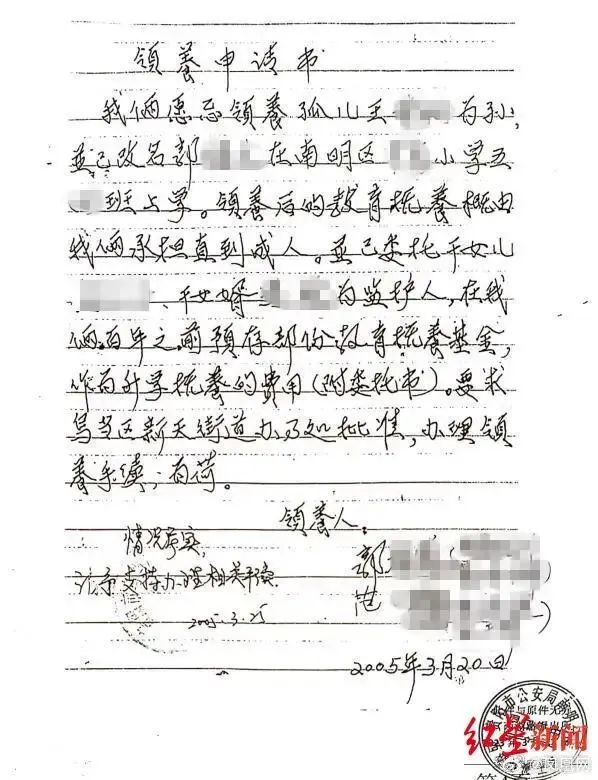 领养申请书
我俩愿意领养孤儿王 为孙,
並已改名郭 在南明区 小学五
班上学。领养后的教育抚养概由
我俩承担直到成人。並已委托干女儿
、干女婿 为监护人,在我
俩百年之前预存部份教育抚养基金,
作为升学抚养的费用(附委托书)。要求
乌当区新天街道办 批准,办理领
养手续,为荷。
领养人:
情况属实,
郭
支持办理相关手续
范
2005.3.25
2005年3月20日
市公安局
红星新闻